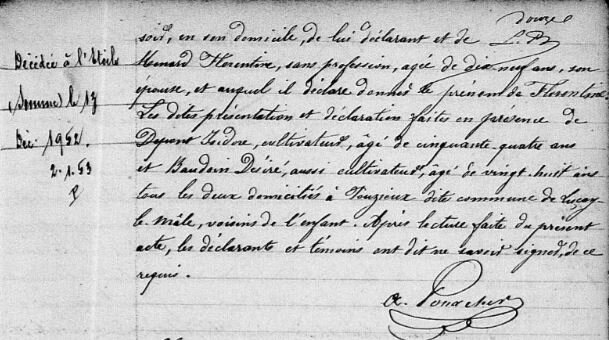 douze
L. B
soir, en son domicile, de lui déclarant et de
Menard Florentine, sans profession, agée de dix neuf ans, son
épouse, et auquel il déclare donner le prenom de Florentine
Les dites présentation et déclaration faites en présence de
Dupont Isidore, cultivateur, âgé de cinquante quatre ans
et Baudoin Désiré, aussi cultivateur, âgé de vingt-huit ans
tous les deux domiciliés à dite commune de Luçay
le Mâle, voisins de l'enfant. Après lecture faite du présent
acte, les déclarants et témoins ont dit ne savoir signer, de ce
requis.
Décédée à l'Etoile
(Somme) le 17
Déc. 1952.
2.1.53